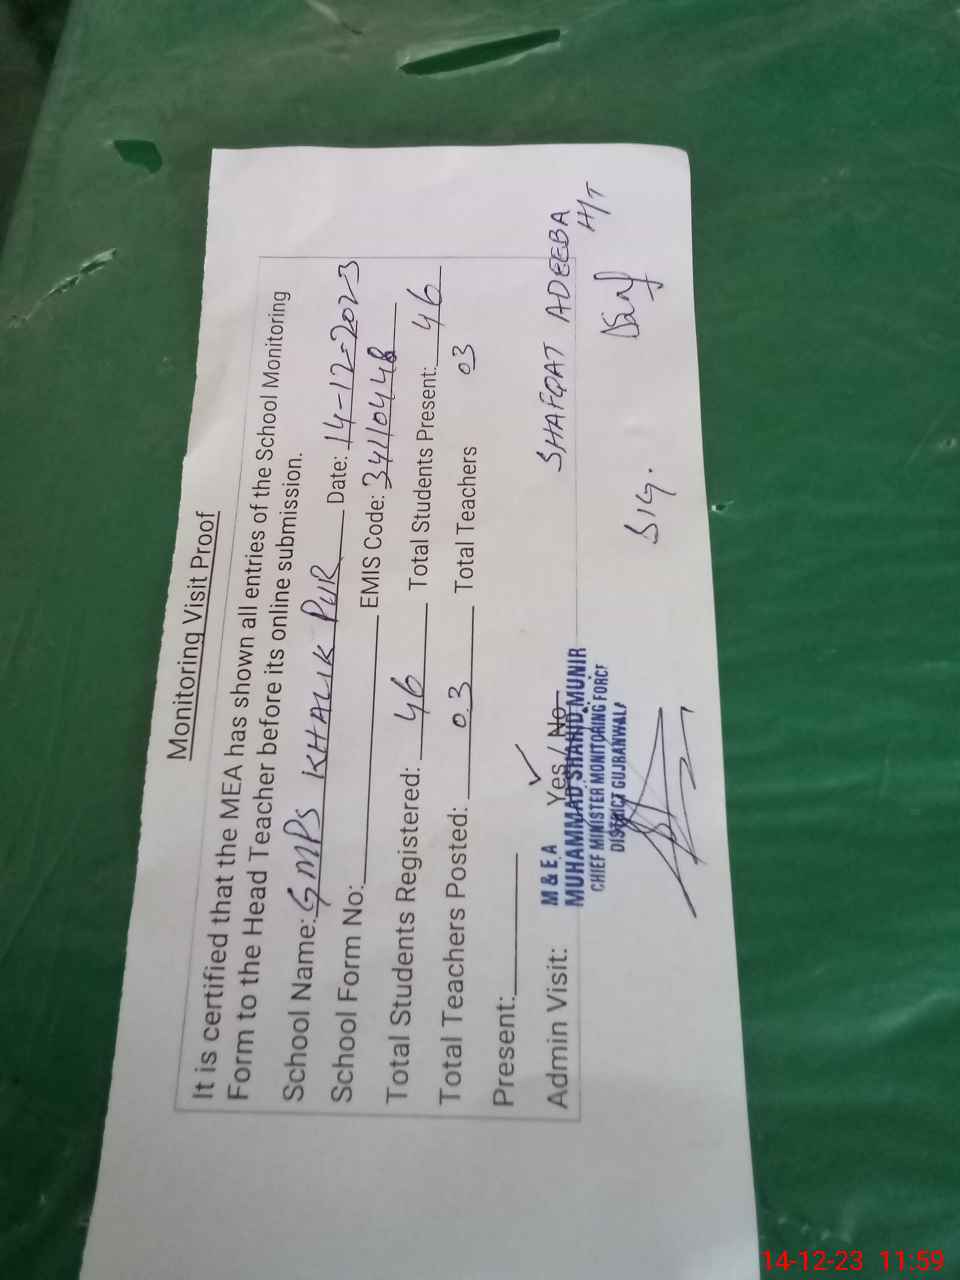 Monitoring Visit Proof
It is certified that the MEA has shown all entries of the School Monitoring
Form to the Head Teacher before its online submission.
School Name: GMPS KHALIK PUR Date: 14-12-2023
School Form No: EMIS Code: 34110448
Total Students Registered: 46 Total Students Present: 46
Total Teachers Posted: 03 Total Teachers 03
Present:
Admin Visit: Yes / No ✓
M & E A
MUHAMMAD SHAHID MUNIR
CHIEF MINISTER MONITORING FORCE
DISTRICT GUJRANWALA
SHAFQAT ADEEBA
H/T
Sig.
14-12-23 11:59